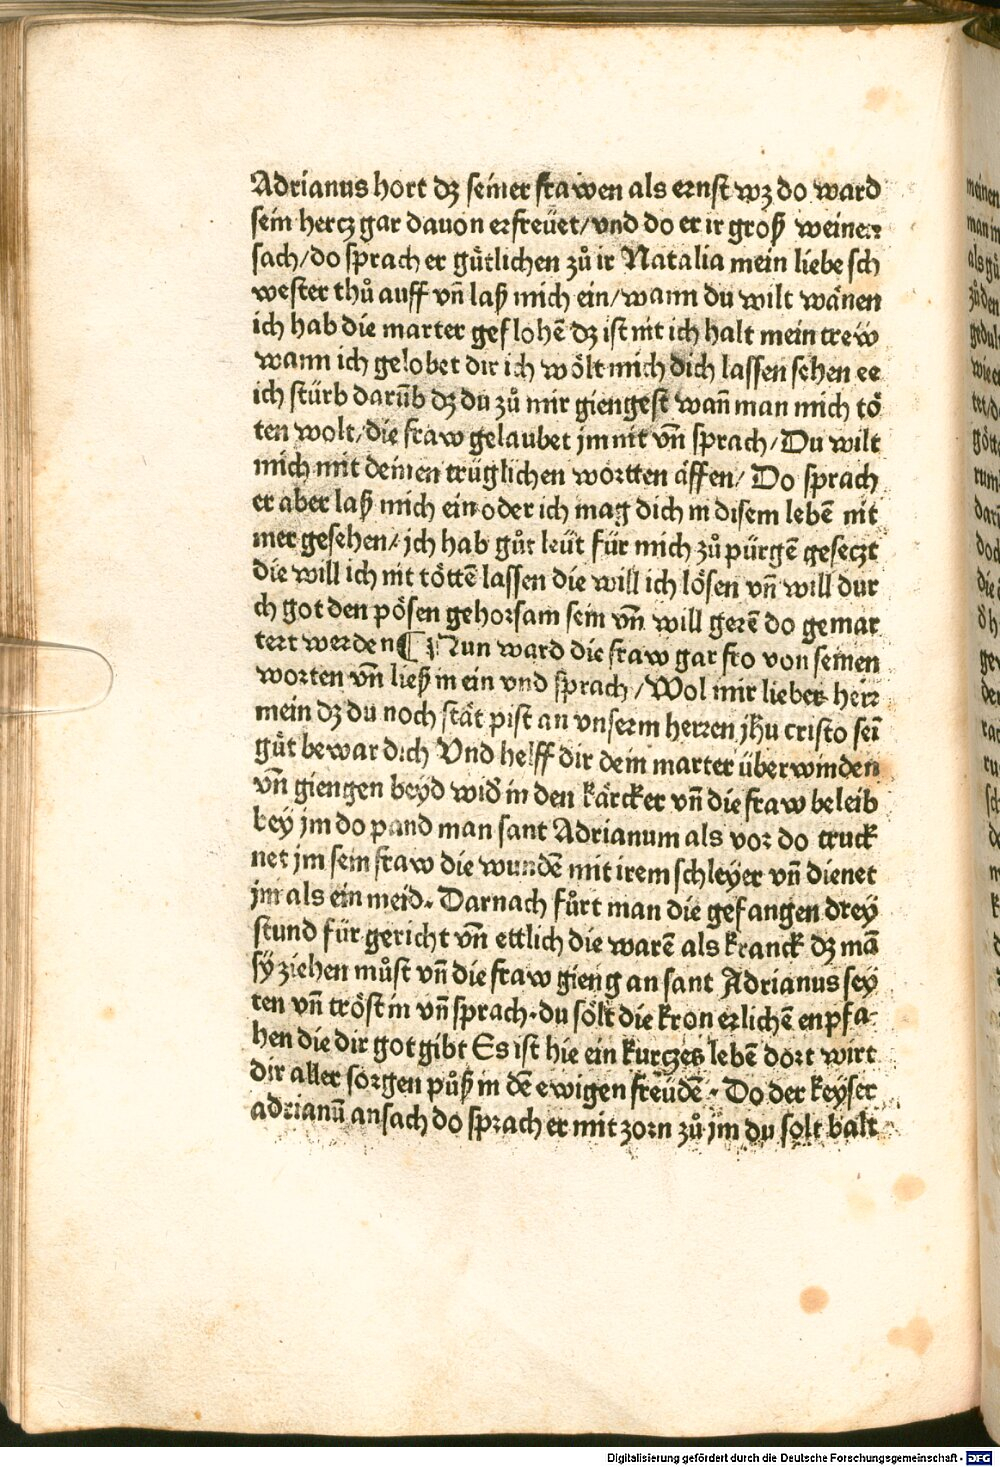 Adrianus hort dz seiner frawen als ernst wz do ward
sein hertz gar dauon erfreüet/vnd do er ir groß weinen
sach/do sprach er guͤtlichen zuͦ ir Natalia mein liebe sch
wester thuͦ auff vñ laß mich ein/wann du wilt wänen
ich hab die marter geflohẽ dz ist nit ich halt mein trew
wann ich gelobet dir ich woͤlt mich dich lassen sehen ee
ich stürb darũb dz du zuͦ mir giengest wañ man mich toͤ
ten wolt/die fraw gelaubet jm nit vñ sprach/Du wilt
mich mit deinen trüglichen wortten äffen/ Do sprach
er aber laß mich ein oder ich mag dich in disem lebẽ nit
mer gesehen/ich hab guͦt leüt für mich zuͦ pürgẽ gesetzt
die will ich nit toͤttẽ lassen die will ich loͤsen vñ will dur
ch got den poͤsen gehorsam sein vñ will gerẽ do gemar
tert werden ¶ Nun ward die fraw gar fro von seinen
worten vñ ließ in ein vnd sprach/Wol mir lieber herr
mein dz du noch stät pist an vnserm herren jhu cristo seĩ
guͤt bewar dich Vnd helff dir dein marter überwinden
vñ giengen beyd wid̕ in den kärcker vñ die fraw beleib
bey jm do pand man sant Adrianum als vor do truck
net jm sein fraw die wundẽ mit irem schleyer vñ dienet
jm als ein meid. Darnach fuͦrt man die gefangen drey
stund für gericht vñ ettlich die warẽ als kranck dz mã
sy ziehen muͦst vñ die fraw gieng an sant Adrianus sey
ten vñ troͤst in vñ sprach.du soͤlt die kron erlichẽ enpfa-
hen die dir got gibt Es ist hie ein kurtzes lebẽ dort wirt
dir aller sorgen puͦß in dẽ ewigen freüdẽ. Do der keyser
adrianũ ansach do sprach er mit zorn zuͦ jm du solt balt
meinen
man in
als
zuͦ den
Digitalisierung gefördert durch die Deutsche Forschungsgemeinschaft - DFG